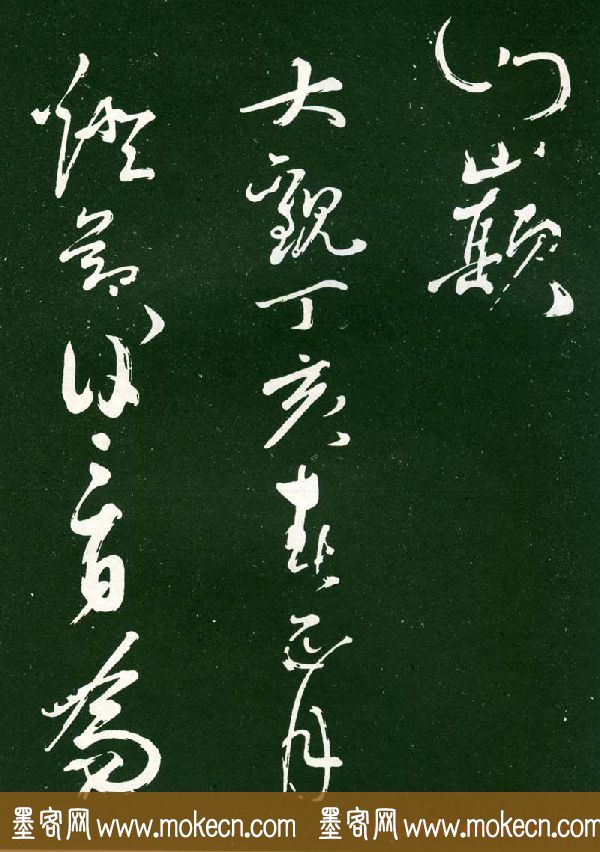 山巔
大觀丁亥春正月
燈節後二日為
墨客网 www.mokecn.com 墨客网 www.mokecn.com